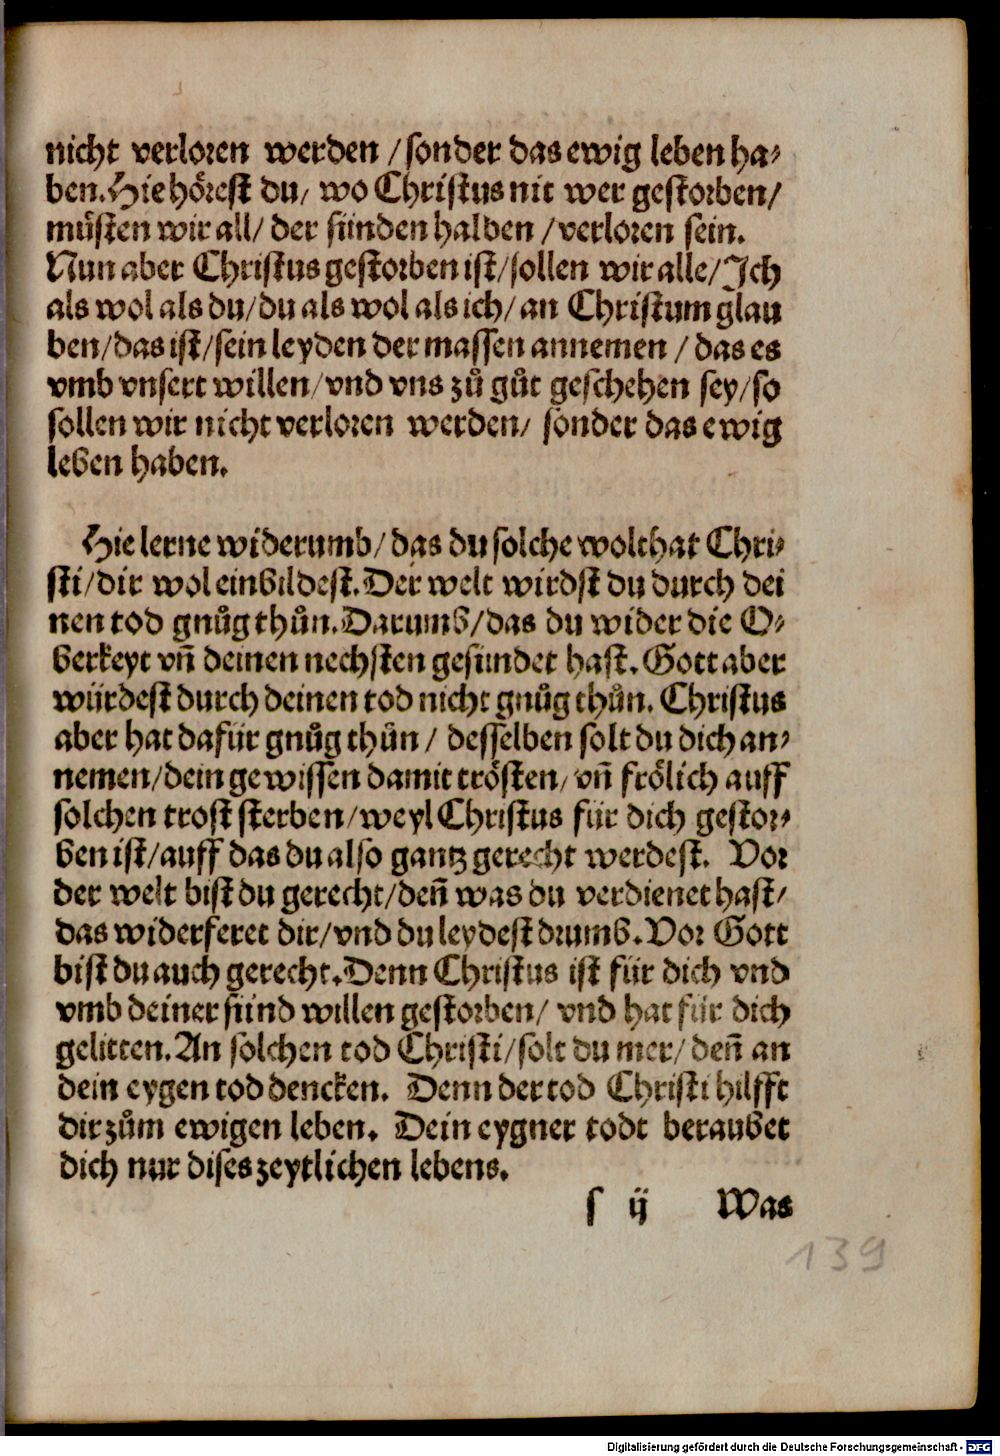 nicht verloren werden / sonder das ewig leben ha⸗
ben. Hie hörest du / wo Christus nit wer gestorben /
müsten wir all / der sünden halben / verloren sein.
Nun aber Christus gestorben ist / sollen wir alle / Ich
als wol als du / du als wol als ich / an Christum glau
ben / das ist / sein leyden der massen annemen / das es
vmb vnsert willen / vnd vns zů gůt geschehen sey / so
sollen wir nicht verloren werden / sonder das ewig
leben haben.
Hie lerne widerumb / das du solche wolthat Chri⸗
sti / dir wol einbildest. Der welt wirdst du durch dei
nen tod gnůg thůn. Darumb / das du wider die O⸗
berkeyt vn̄ deinen nechsten gesündet hast. Gott aber
würdest durch deinen tod nicht gnůg thůn. Christus
aber hat dafür gnůg thůn / desselben solt du dich an⸗
nemen / dein gewissen damit trösten / vn̄ frölich auff
solchen trost sterben / weyl Christus für dich gestor⸗
ben ist / auff das du also gantz gerecht werdest. Vor
der welt bist du gerecht / den̄ was du verdienet hast /
das widerferet dir / vnd du leydest drumb. Vor Gott
bist du auch gerecht. Denn Christus ist für dich vnd
vmb deiner sünd willen gestorben / vnd hat für dich
gelitten. An solchen tod Christi / solt du mer / den̄ an
dein eygen tod dencken. Denn der tod Christi hilfft
dir zům ewigen leben. Dein eygner todt beraubet
dich nur dises zeytlichen lebens.
s ij Was
139
Digitalisierung gefördert durch die Deutsche Forschungsgemeinschaft - DFG